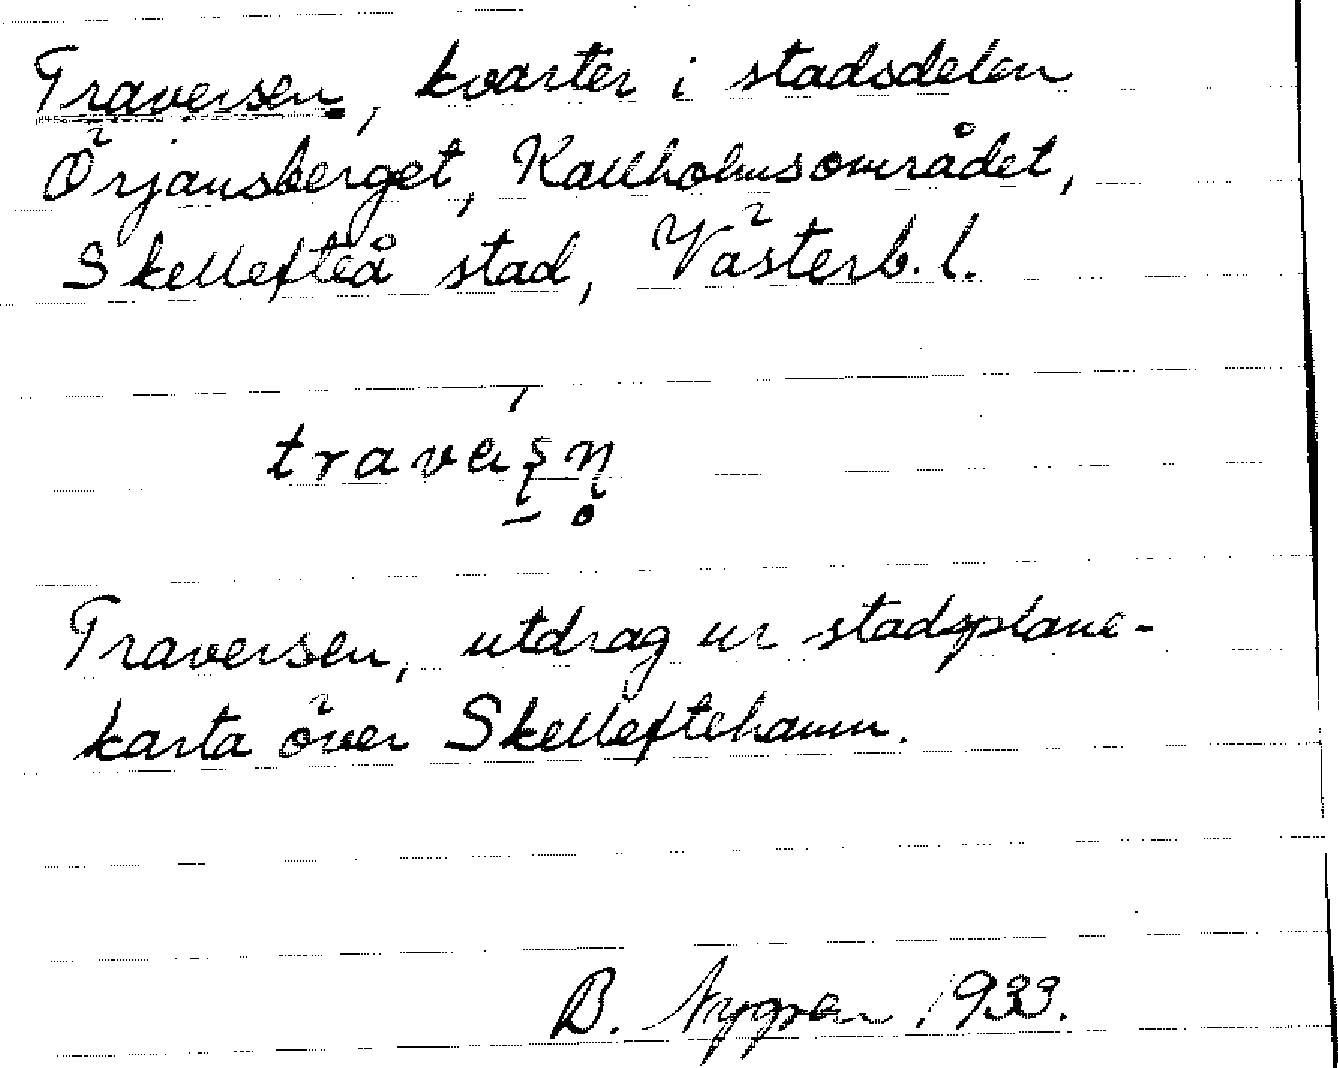 Traversen, kvarter i stadsdelen
Örjansberget, Kallholmsområdet,
Skellefteå stad, Västerb. l.
travaʂɳ̥
Traversen, utdrag ur stadsplane-
karta över Skelleftehamn.
B. Nygren 1933.